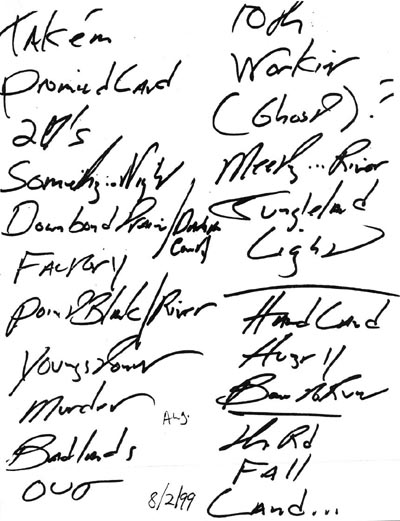 Take'm
Promised Land
2 ♥'s
Something...Night
Downbound Train/Darlington
County
Factory
Point Blank/River
Youngstown
Murder
Badlands
Out
10th
Workin
(Ghost)?
Meeting...River
Jungleland
Light
Hard Land
Hungry
Born to Run
Th Rd
Fall
Land...
8/2/99